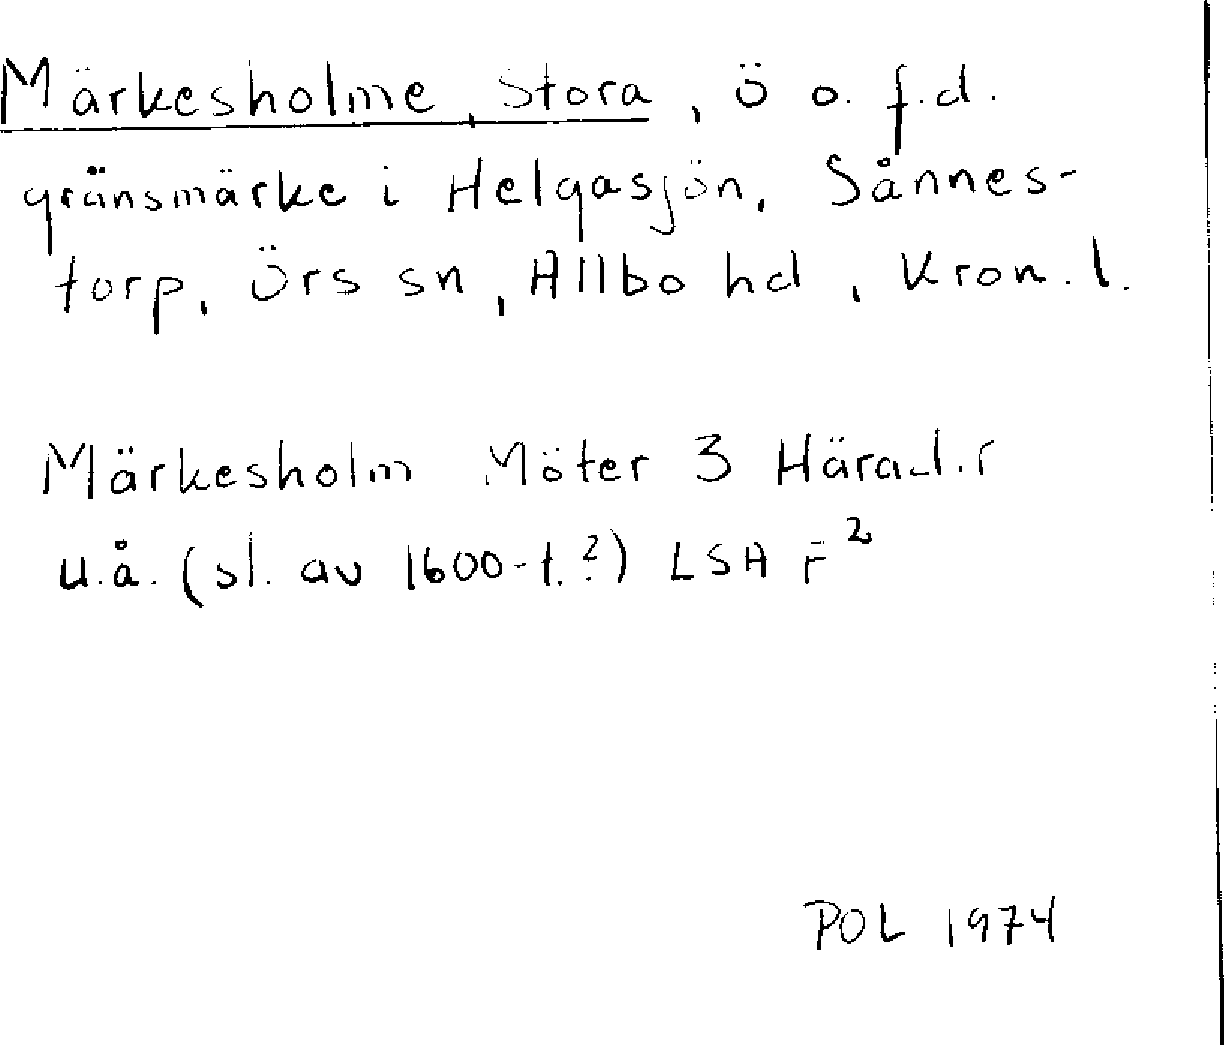 Märkesholme, Stora, ö o. f.d.
gränsmärke i Helgasjön, Sånnes-
torp, Örs sn, Allbo hd, Kron. l.
Märkesholm Möter 3 Härad.r
u.å. (sl. av 1600-t.?) LSA F²
POL 1974